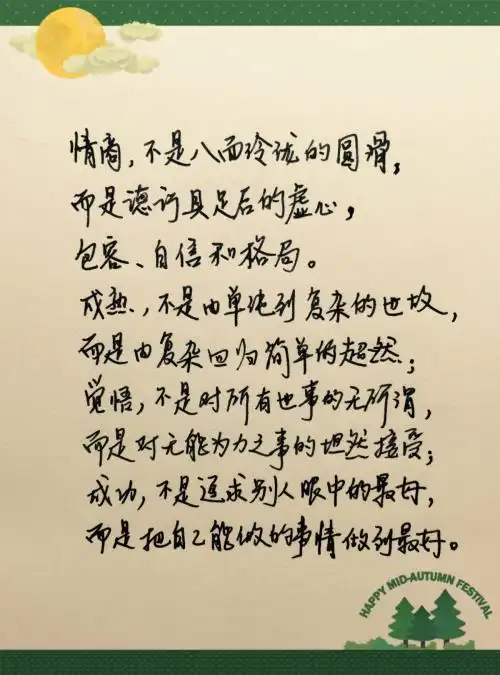 情商，不是八面玲珑的圆滑，
而是德行具足后的虚心，
包容、自信和格局。
成熟，不是由单纯到复杂的世故，
而是由复杂回归简单的超然；
觉悟，不是对所有世事的无所谓，
而是对无能为力之事的坦然接受；
成功，不是追求别人眼中的最好，
而是把自己能做的事情做到最好。
HAPPY MID-AUTUMN FESTIVAL